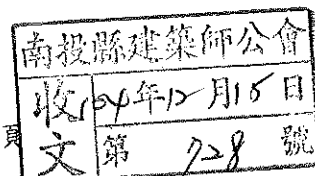 南投縣建築師公會
收文
104年12月15日
第 728 號
頁